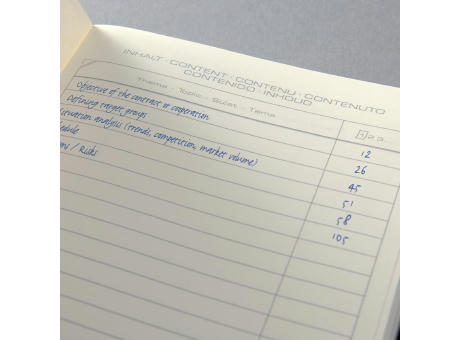 INHALT · CONTENT · CONTENU · CONTENUTO
CONTENIDO · INHOUD
Thema · Topic · Sujet · Tema
Objective of the contract or cooperation 12
Defining target groups 26
Situation analysis (trends, competition, market volume) 45
51
58
105
/ Risks